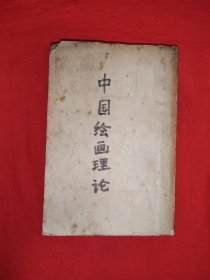 中国绘画理论